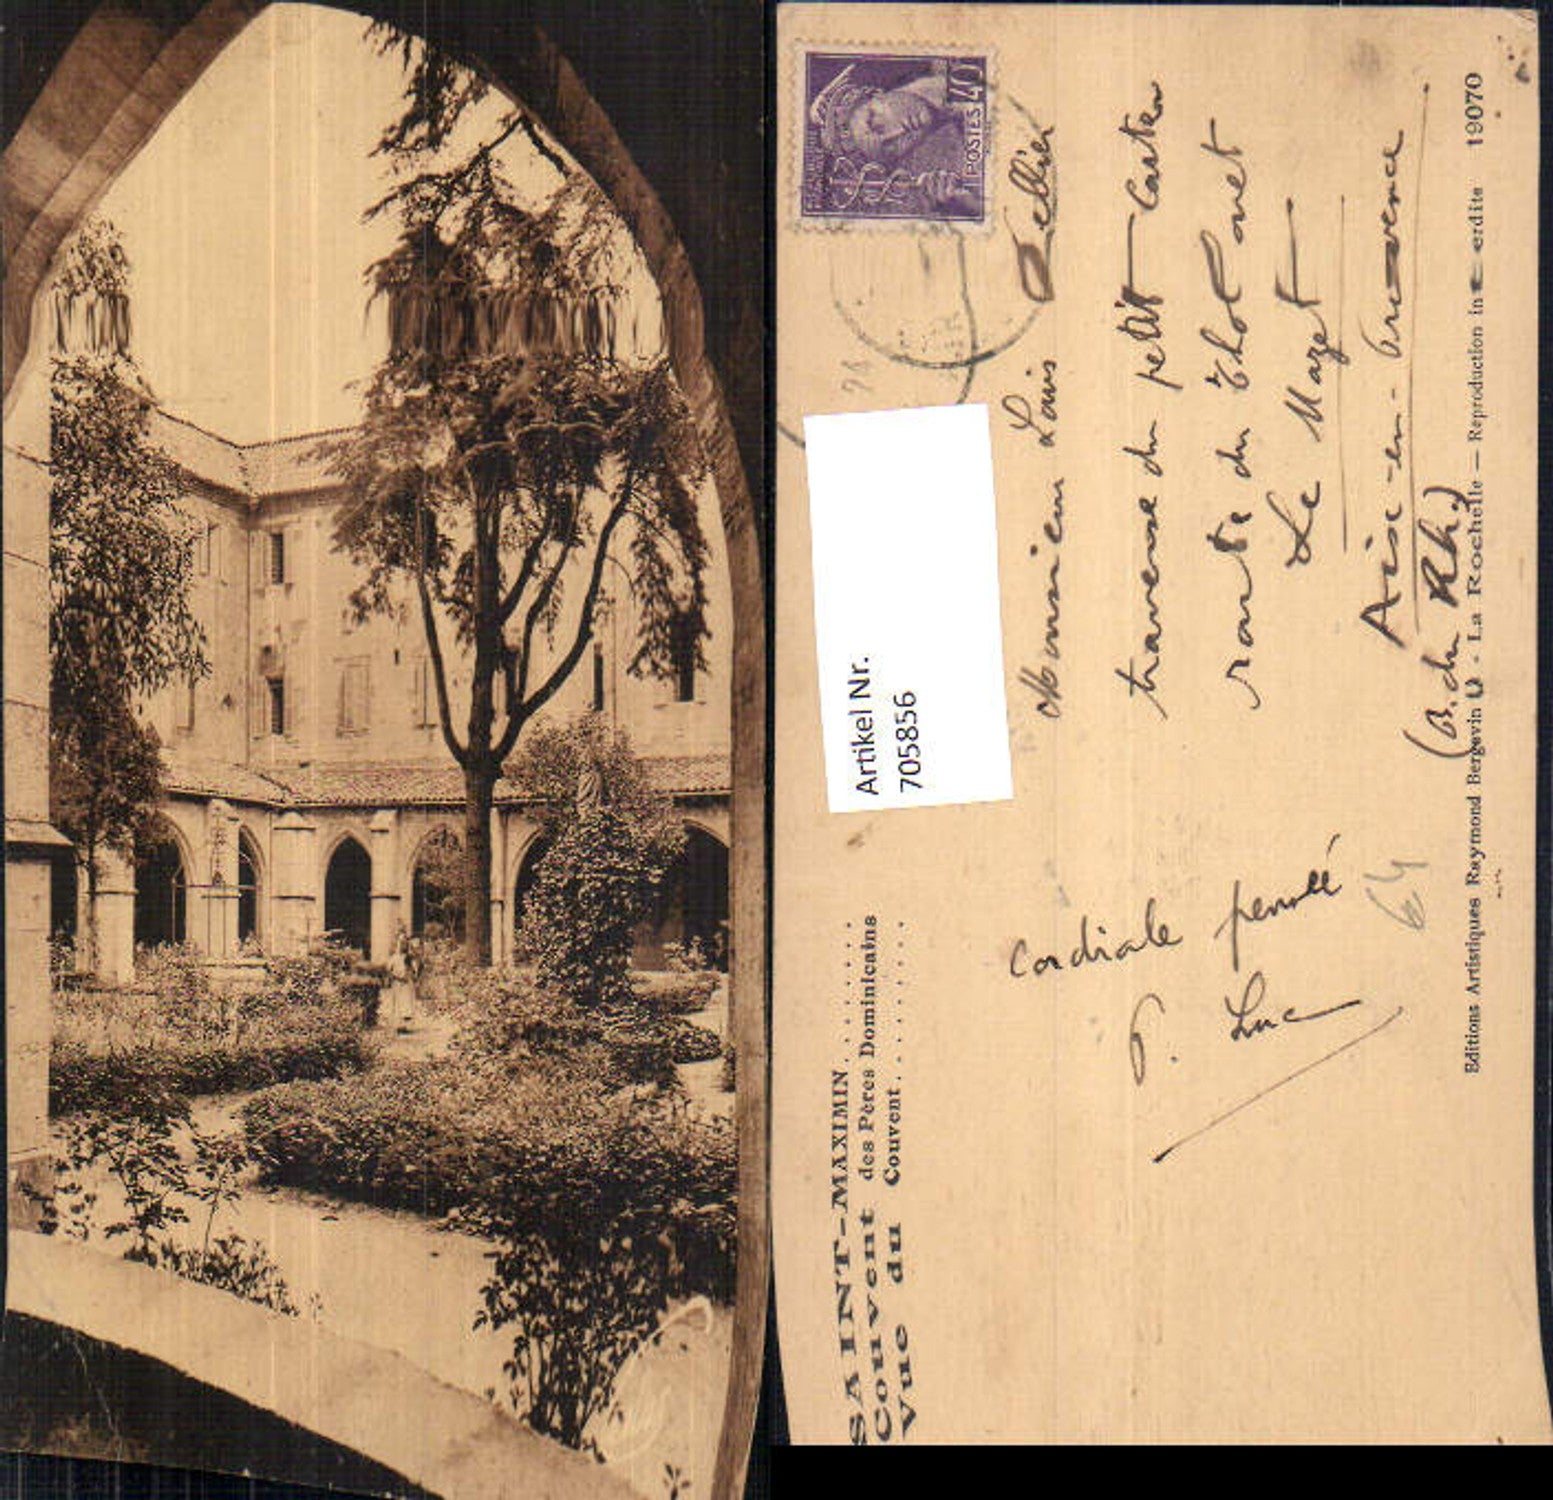 SAINT-MAXIMIN
Couvent des Pères Dominicains
Vue du Couvent
POSTES 40
Artikel Nr.
705856
Monsieur Louis
traverse du petit
route du Tholonet
Le Mazet
Aix-en-Provence
(B. du Rh.)
Cordiale pensée
P. Luc
64
Editions Artistiques Raymond Bergevin - La Rochelle — Reproduction 19070